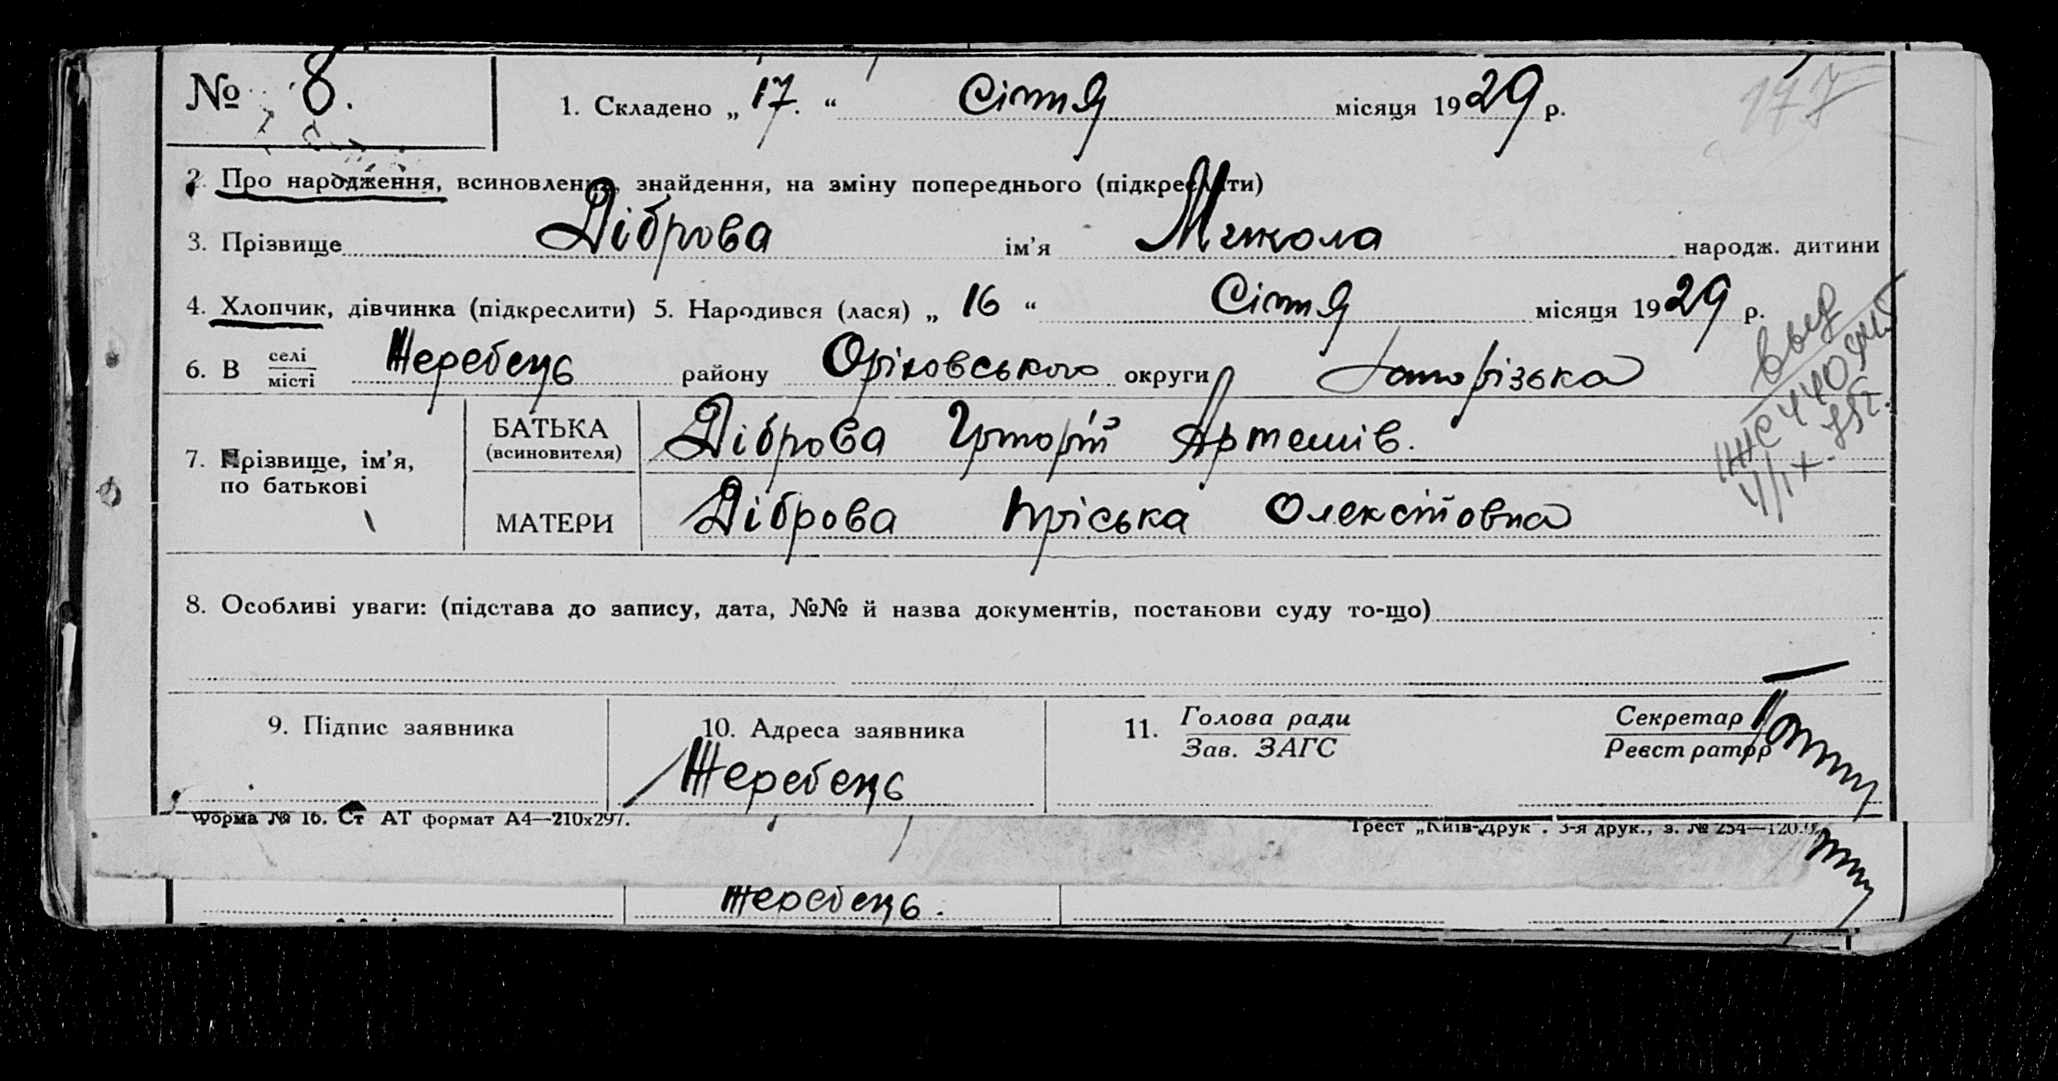 № 8. 1. Складено „ 17. “ Січня місяця 1929 р. 177
2. Про народження, всиновлення, знайдення, на зміну попереднього (підкреслити)
3. Прізвище Діброва ім'я Микола народж. дитини
4. Хлопчик, дівчинка (підкреслити) 5. Народився (лася) „ 16 “ Січня місяця 1929 р.
6. В селі місті Жеребець району Оріховського округи Запорізька
7. Прізвище, ім'я, по батькові
БАТЬКА (всиновителя) Діброва Григорій Артемів.
МАТЕРИ Діброва Пріська Олексіївна
8. Особливі уваги: (підстава до запису, дата, №№ й назва документів, постанови суду то-що)
9. Підпис заявника 10. Адреса заявника 11. Голова ради Секретар
Зав. ЗАГС Реєстратор
Жеребець
Форма № 16. Ст АТ формат А4—210х297. Трест „Київ-Друк“. 3-я друк., з. № 254—120.
Жеребець.